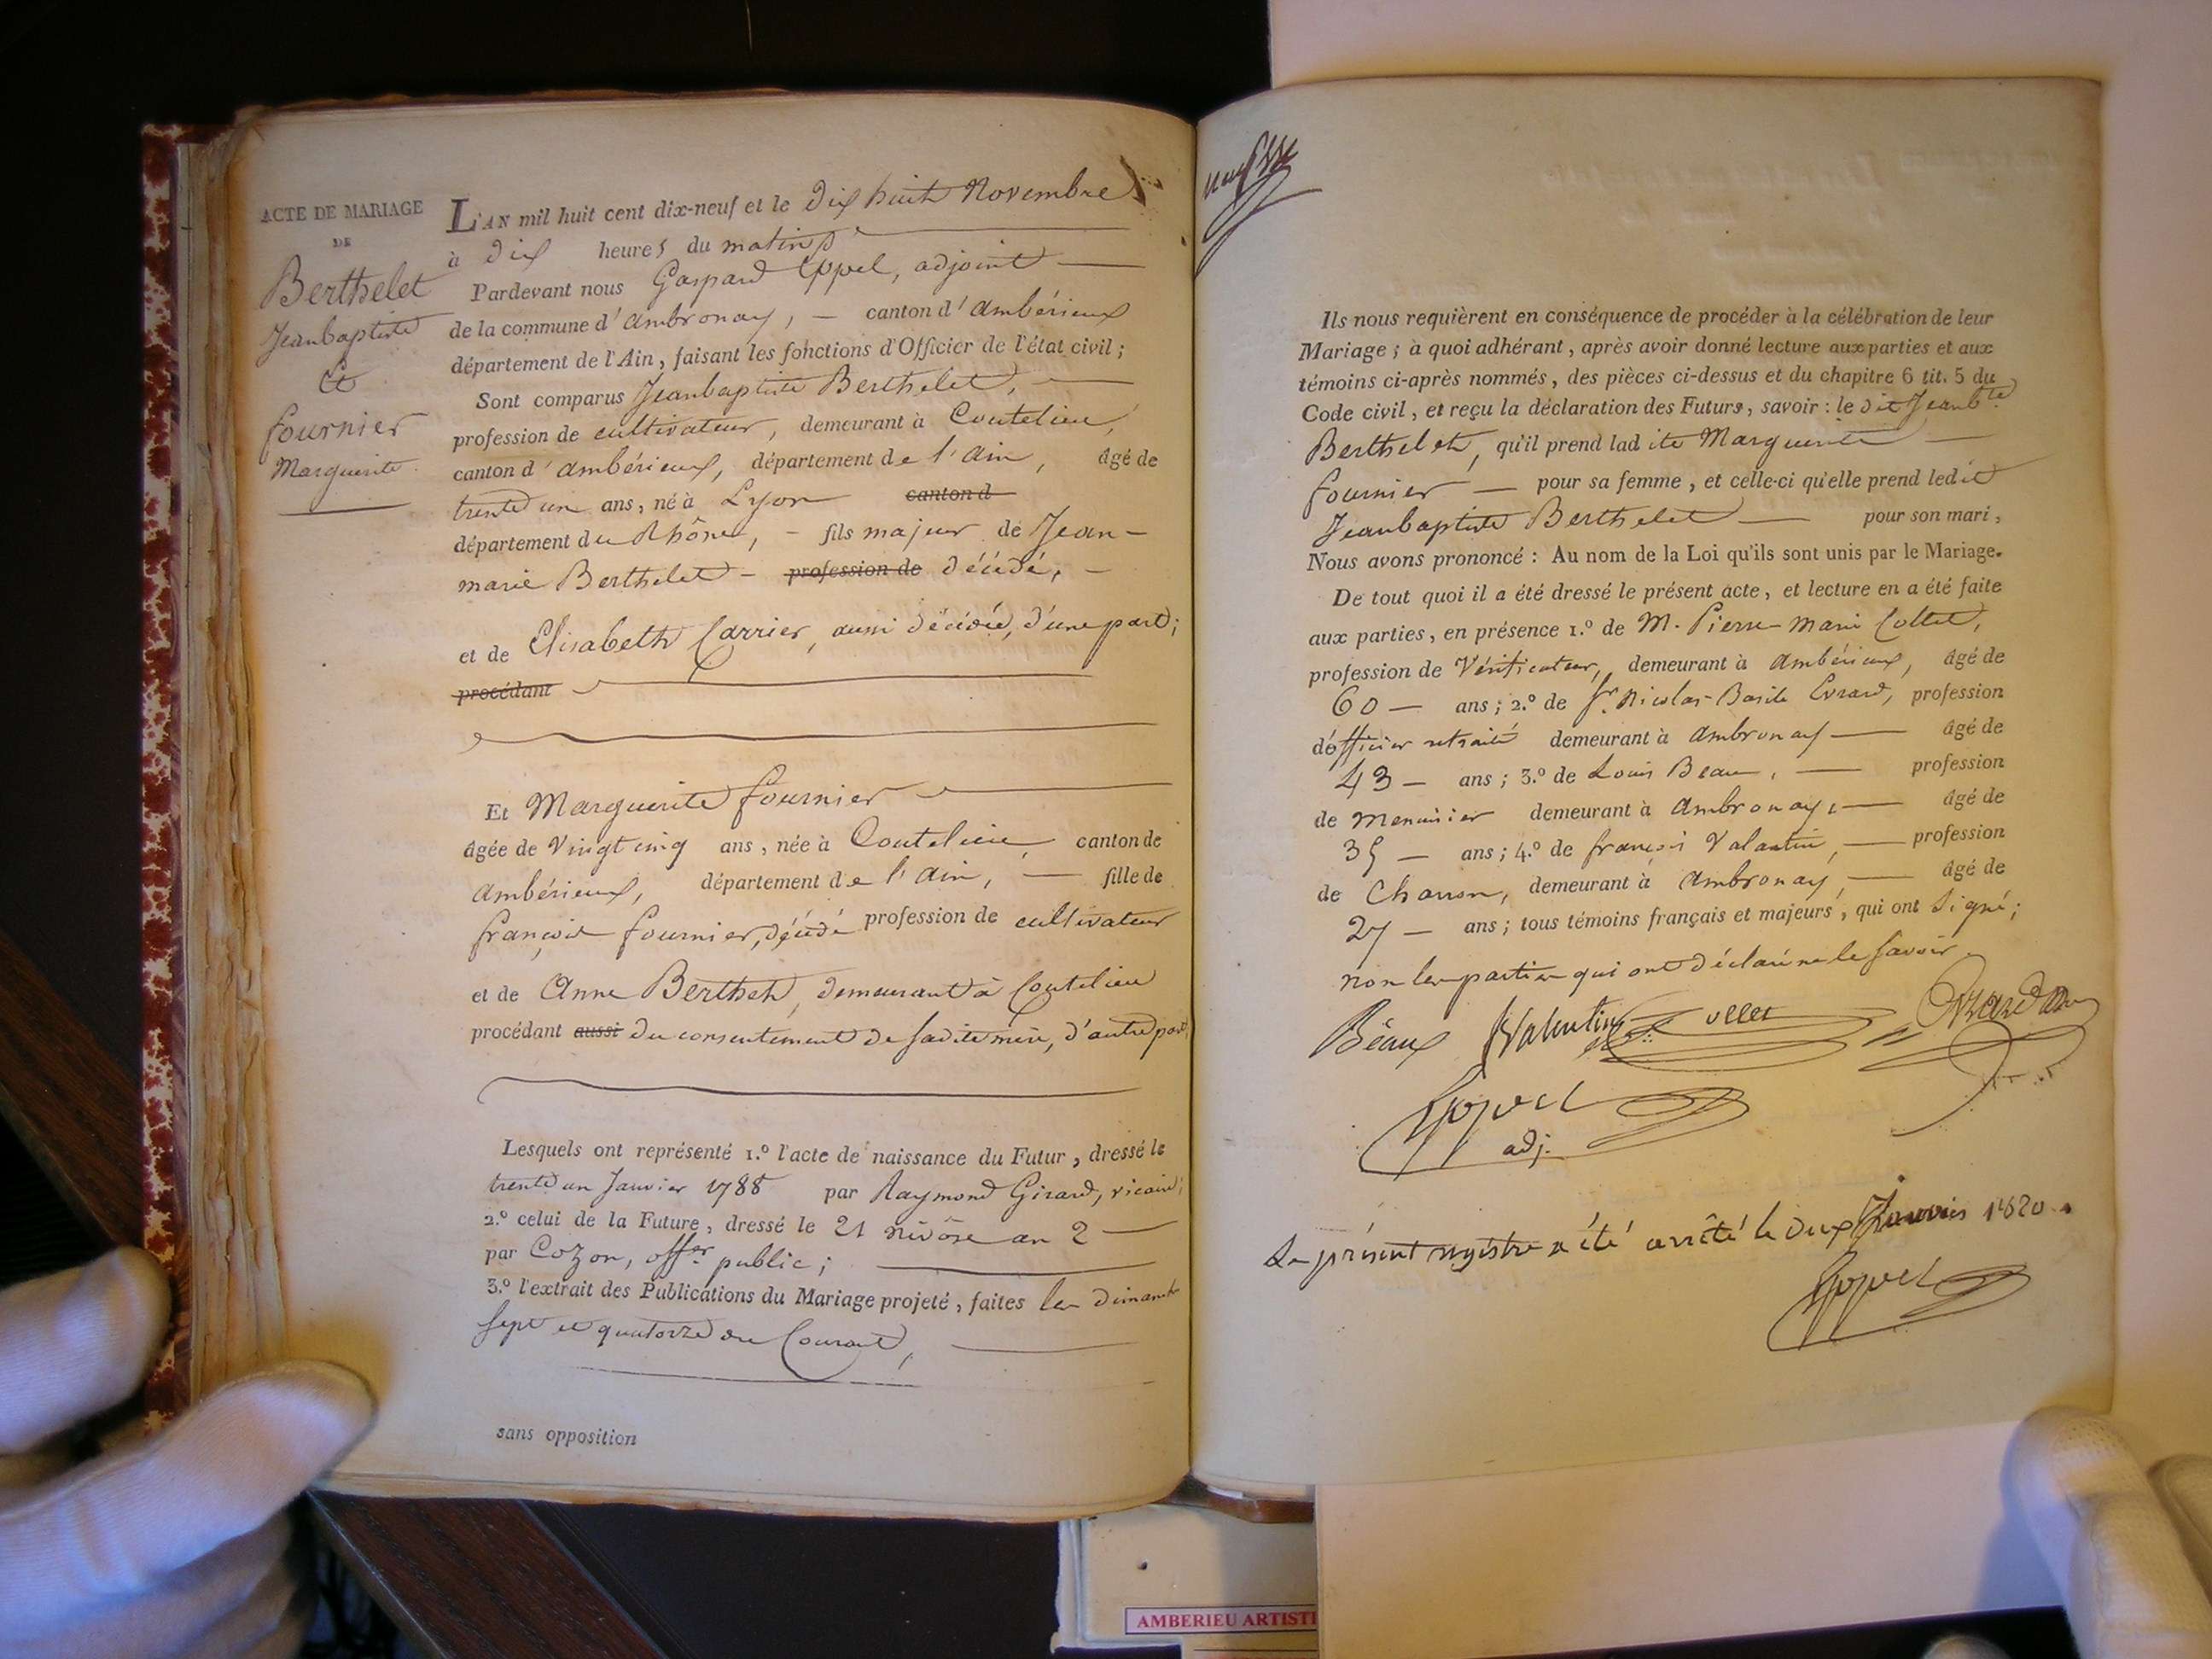 ACTE DE MARIAGE
DE
Berthelet
Jeanbaptiste
Et
fournier
Marguerite
L'AN mil huit cent dix-neuf et le dix huit Novembre
à dix heures du matin
Pardevant nous Gaspard Eppel, adjoint
de la commune d'ambronay, canton d'ambérieux
département de l'Ain, faisant les fonctions d'Officier de l'état civil;
Sont comparus Jeanbaptiste Berthelet,
profession de cultivateur, demeurant à Coutelieu,
canton d'ambérieux, département de l'ain, âgé de
trente un ans, né à Lyon canton d
département du Rhône, - fils majeur de Jean-
marie Berthelet - profession de décédé, -
et de Elisabeth Carrier, aussi décédée, d'une part;
procédant
Et Marguerite fournier
âgée de vingt cinq ans, née à Coutelieu, canton de
ambérieux, département de l'ain, fille de
françois fournier, décédé profession de cultivateur
et de Anne Berthet, demeurant à Coutelieu
procédant aussi du consentement de sadite mère, d'autre part
Lesquels ont représenté 1.º l'acte de naissance du Futur, dressé le
trente un Janvier 1788 par Raymond Girard, vicaire;
2.º celui de la Future, dressé le 21 nivôse an 2
par Cozon, offer public;
3.º l'extrait des Publications du Mariage projeté, faites les dimanche
sept et quatorze du Courant,
sans opposition
Ils nous requièrent en conséquence de procéder à la célébration de leur
Mariage; à quoi adhérant, après avoir donné lecture aux parties et aux
témoins ci-après nommés, des pièces ci-dessus et du chapitre 6 tit. 5 du
Code civil, et reçu la déclaration des Futurs, savoir: le dit Jeanb.te
Berthelet, qu'il prend ladite Marguerite
fournier pour sa femme, et celle-ci qu'elle prend ledit
Jeanbaptiste Berthelet pour son mari,
Nous avons prononcé: Au nom de la Loi qu'ils sont unis par le Mariage.
De tout quoi il a été dressé le présent acte, et lecture en a été faite
aux parties, en présence 1.º de M. Pierre-marie Collet,
profession de Vérificateur, demeurant à Ambérieux, âgé de
60 ans; 2.º de Sr. Nicolas-Basile Evrard, profession
d'officier retraité demeurant à Ambronay âgé de
43 ans; 3.º de Louis Beau, profession
de menuisier demeurant à Ambronay, âgé de
35 ans; 4.º de françois Valantin, profession
de Charron, demeurant à Ambronay, âgé de
27 ans; tous témoins français et majeurs, qui ont signé;
non les parties qui ont déclaré ne le savoir
Béaux Valentin ollet Evrard
Eppel
adj.
Le présent registre a été arrêté le deux Janvier 1820.
Eppel
AMBERIEU ARTISTI